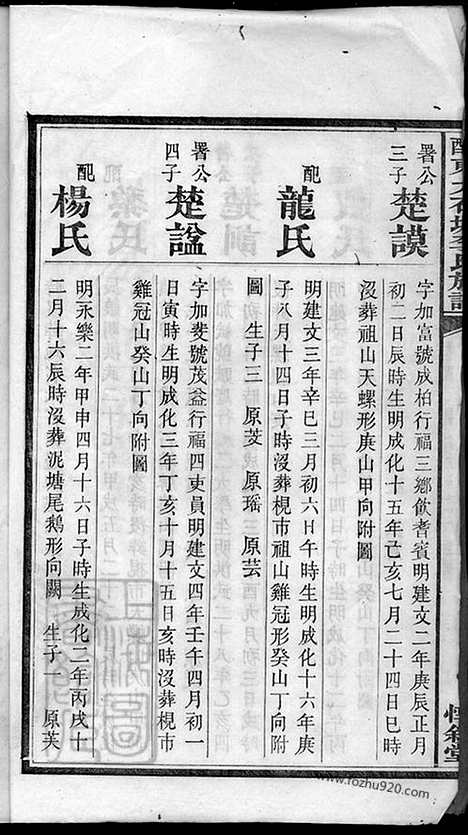 李氏族譜
惇敘堂
署公
三子
楚謨
字加富號成柏行福三鄉飲耆賓明建文二年庚辰正月
初二日辰時生明成化十五年己亥七月二十四日巳時
沒葬祖山天螺形庚山甲向附圖
配
龍氏
明建文三年辛巳三月初六日午時生明成化十六年庚
子八月十四日子時沒葬梘市祖山雞冠形癸山丁向附
圖 生子三 原芠 原瑶 原芸
署公
四子
楚謚
字加斐號茂益行福四吏員明建文四年壬午四月初一
日寅時生明成化三年丁亥十月十五日亥時沒葬梘市
雞冠山癸山丁向附圖
配
楊氏
明永樂二年甲申四月十六日子時生成化二年丙戌十
二月十六辰時沒葬泥塘尾鵝形向闕 生子一 原芙
www.fozhu920.com